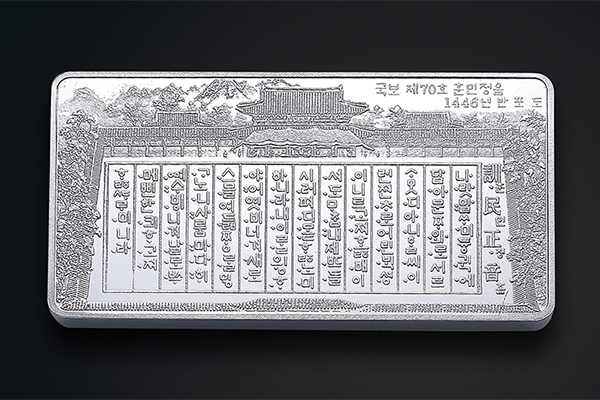 국보 제70호 훈민정음
1446년 반 포 도
訓훈民민正정音음
나랏말ᄊᆞ미듕귁에
달아문ᄍᆞᆼ와로서르
ᄉᆞᄆᆞᆺ디아니ᄒᆞᆯᄊᆡ이
런젼ᄎᆞ로어린ᄇᆡᆨ셩
이니르고져호ᇙ배이
셔도ᄆᆞᄎᆞᆷ내제ᄠᅳ들
시러펴디몯ᄒᆞᇙ노미
하니라내이ᄅᆞᆯ윙ᄒᆞ
야어엿비너겨새로
스믈여듧ᄍᆞᆼᄅᆞᆯᄆᆡᇰ
ᄀᆞ노니사ᄅᆞᆷ마다ᄒᆡ
니겨날로ᄡᅮ
ᄒᆞ고져
ᄒᆞᇙᄯᆞᄅᆞ미니라